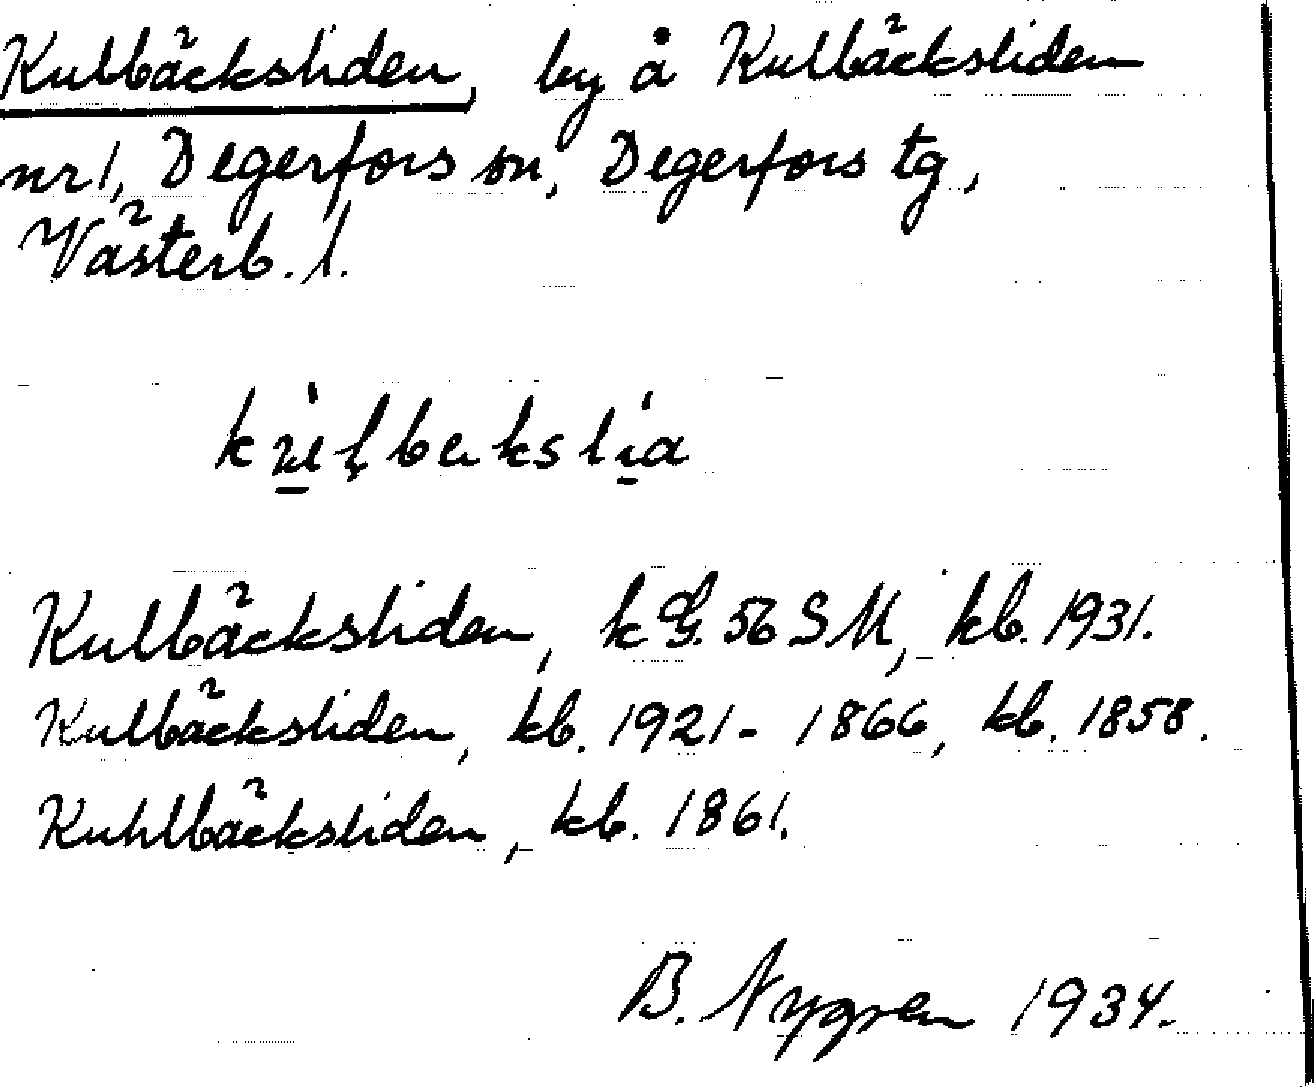 Kulbäcksliden, by å Kulbäcksliden
nr 1, Degerfors sn, Degerfors tg,
Västerb. l.
Kulbäcksliden, k G. 56 SM, kb. 1931.
Kulbäcksliden, kb. 1921 - 1866, kb. 1858.
Kuhlbäcksliden, kb. 1861.
B. Nygren 1934.